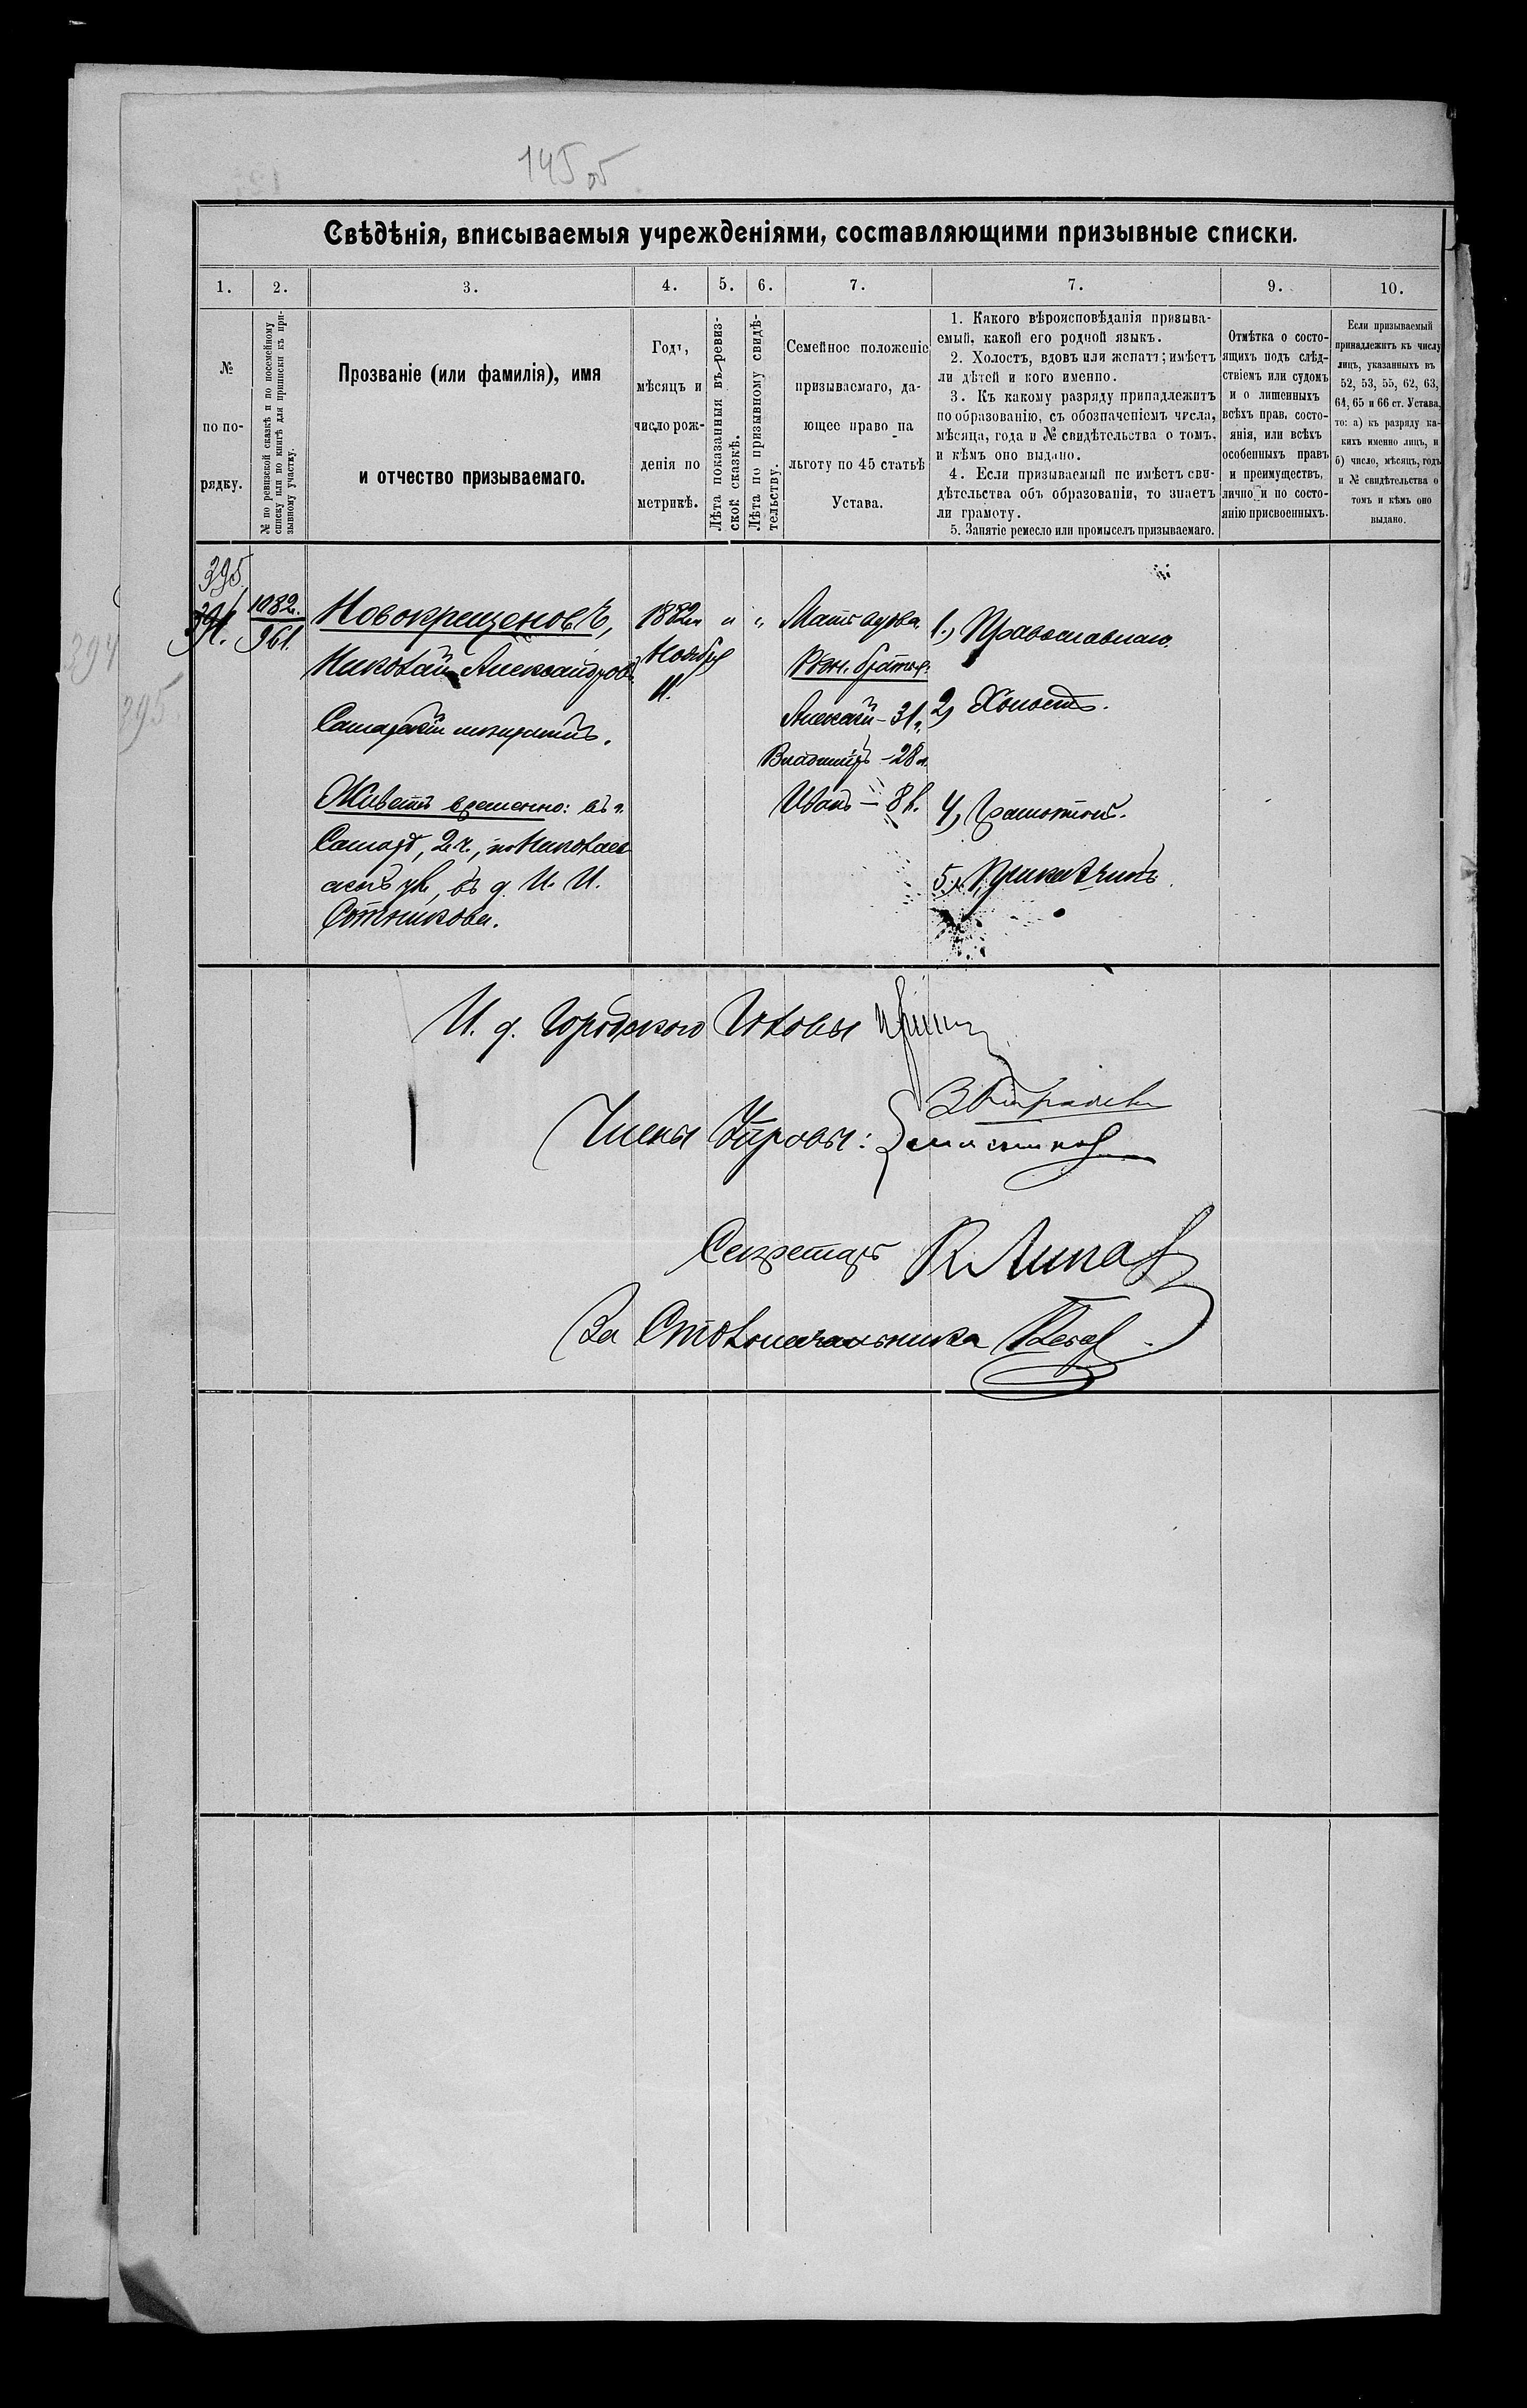 145 об
Свѣдѣнія, вписываемыя учрежденіями, составляющими призывные списки.
1. 2. 3. 4. 5. 6. 7. 7. 9. 10.
№
по по-
рядку.
№ по ревизской сказкѣ и по посемейному
списку или по книгѣ для приписки къ при-
зывному участку.
Прозваніе (или фамилія), имя
и отчество призываемаго.
Годъ,
мѣсяцъ и
число рож-
денія по
метрикѣ.
Лѣта показанныя въ ревиз-
ской сказкѣ.
Лѣта по призывному свидѣ-
тельству.
Семейное положеніе
призываемаго, да-
ющее право на
льготу по 45 статьѣ
Устава.
1. Какого вѣроисповѣданія призыва-
емый, какой его родной языкъ.
2. Холостъ, вдовъ или женатъ; имѣетъ
ли дѣтей и кого именно.
3. Къ какому разряду принадлежитъ
по образованію, съ обозначеніемъ числа,
мѣсяца, года и № свидѣтельства о томъ,
и кѣмъ оно выдано.
4. Если призываемый не имѣетъ сви-
дѣтельства объ образованіи, то знаетъ
ли грамоту.
5. Занятіе ремесло или промыселъ призываемаго.
Отмѣтка о состо-
ящихъ подъ слѣд-
ствіемъ или судомъ
и о лишенныхъ
всѣхъ прав, состо-
янія, или всѣхъ
особенныхъ правъ
и преимуществъ,
лично и по состо-
янію присвоенныхъ.
Если призываемый
принадлежитъ къ числу
лицъ, указанныхъ въ
52, 53, 55, 62, 63,
64, 65 и 66 ст. Устава,
то: а) къ разряду ка-
кихъ именно лицъ, и
б) число, мѣсяцъ, годъ
и № свидѣтельства о
томъ и кѣмъ оно
выдано.
395.
394.
1082.
961.
Новокрещеновъ,
Николай Александровъ
Самарскій мѣщанинъ.
Живетъ временно: въ г.
Самарѣ, 2 ч., по Николаев
ской ул., въ д. И. И.
Сотникова.
1882 г.
Ноября
11.
" "
Мать вдова.
Родн. братья:
Алексѣй – 31 г.
Владиміръ – 28 л.
Иванъ – 8 л.
1.) Православнаго.
2) Холостъ.
4) Грамотный.
5.) Прикащикъ.
394
395
И. д. Городского Головы
Члены Управы:
Секретарь
За Столоначальника